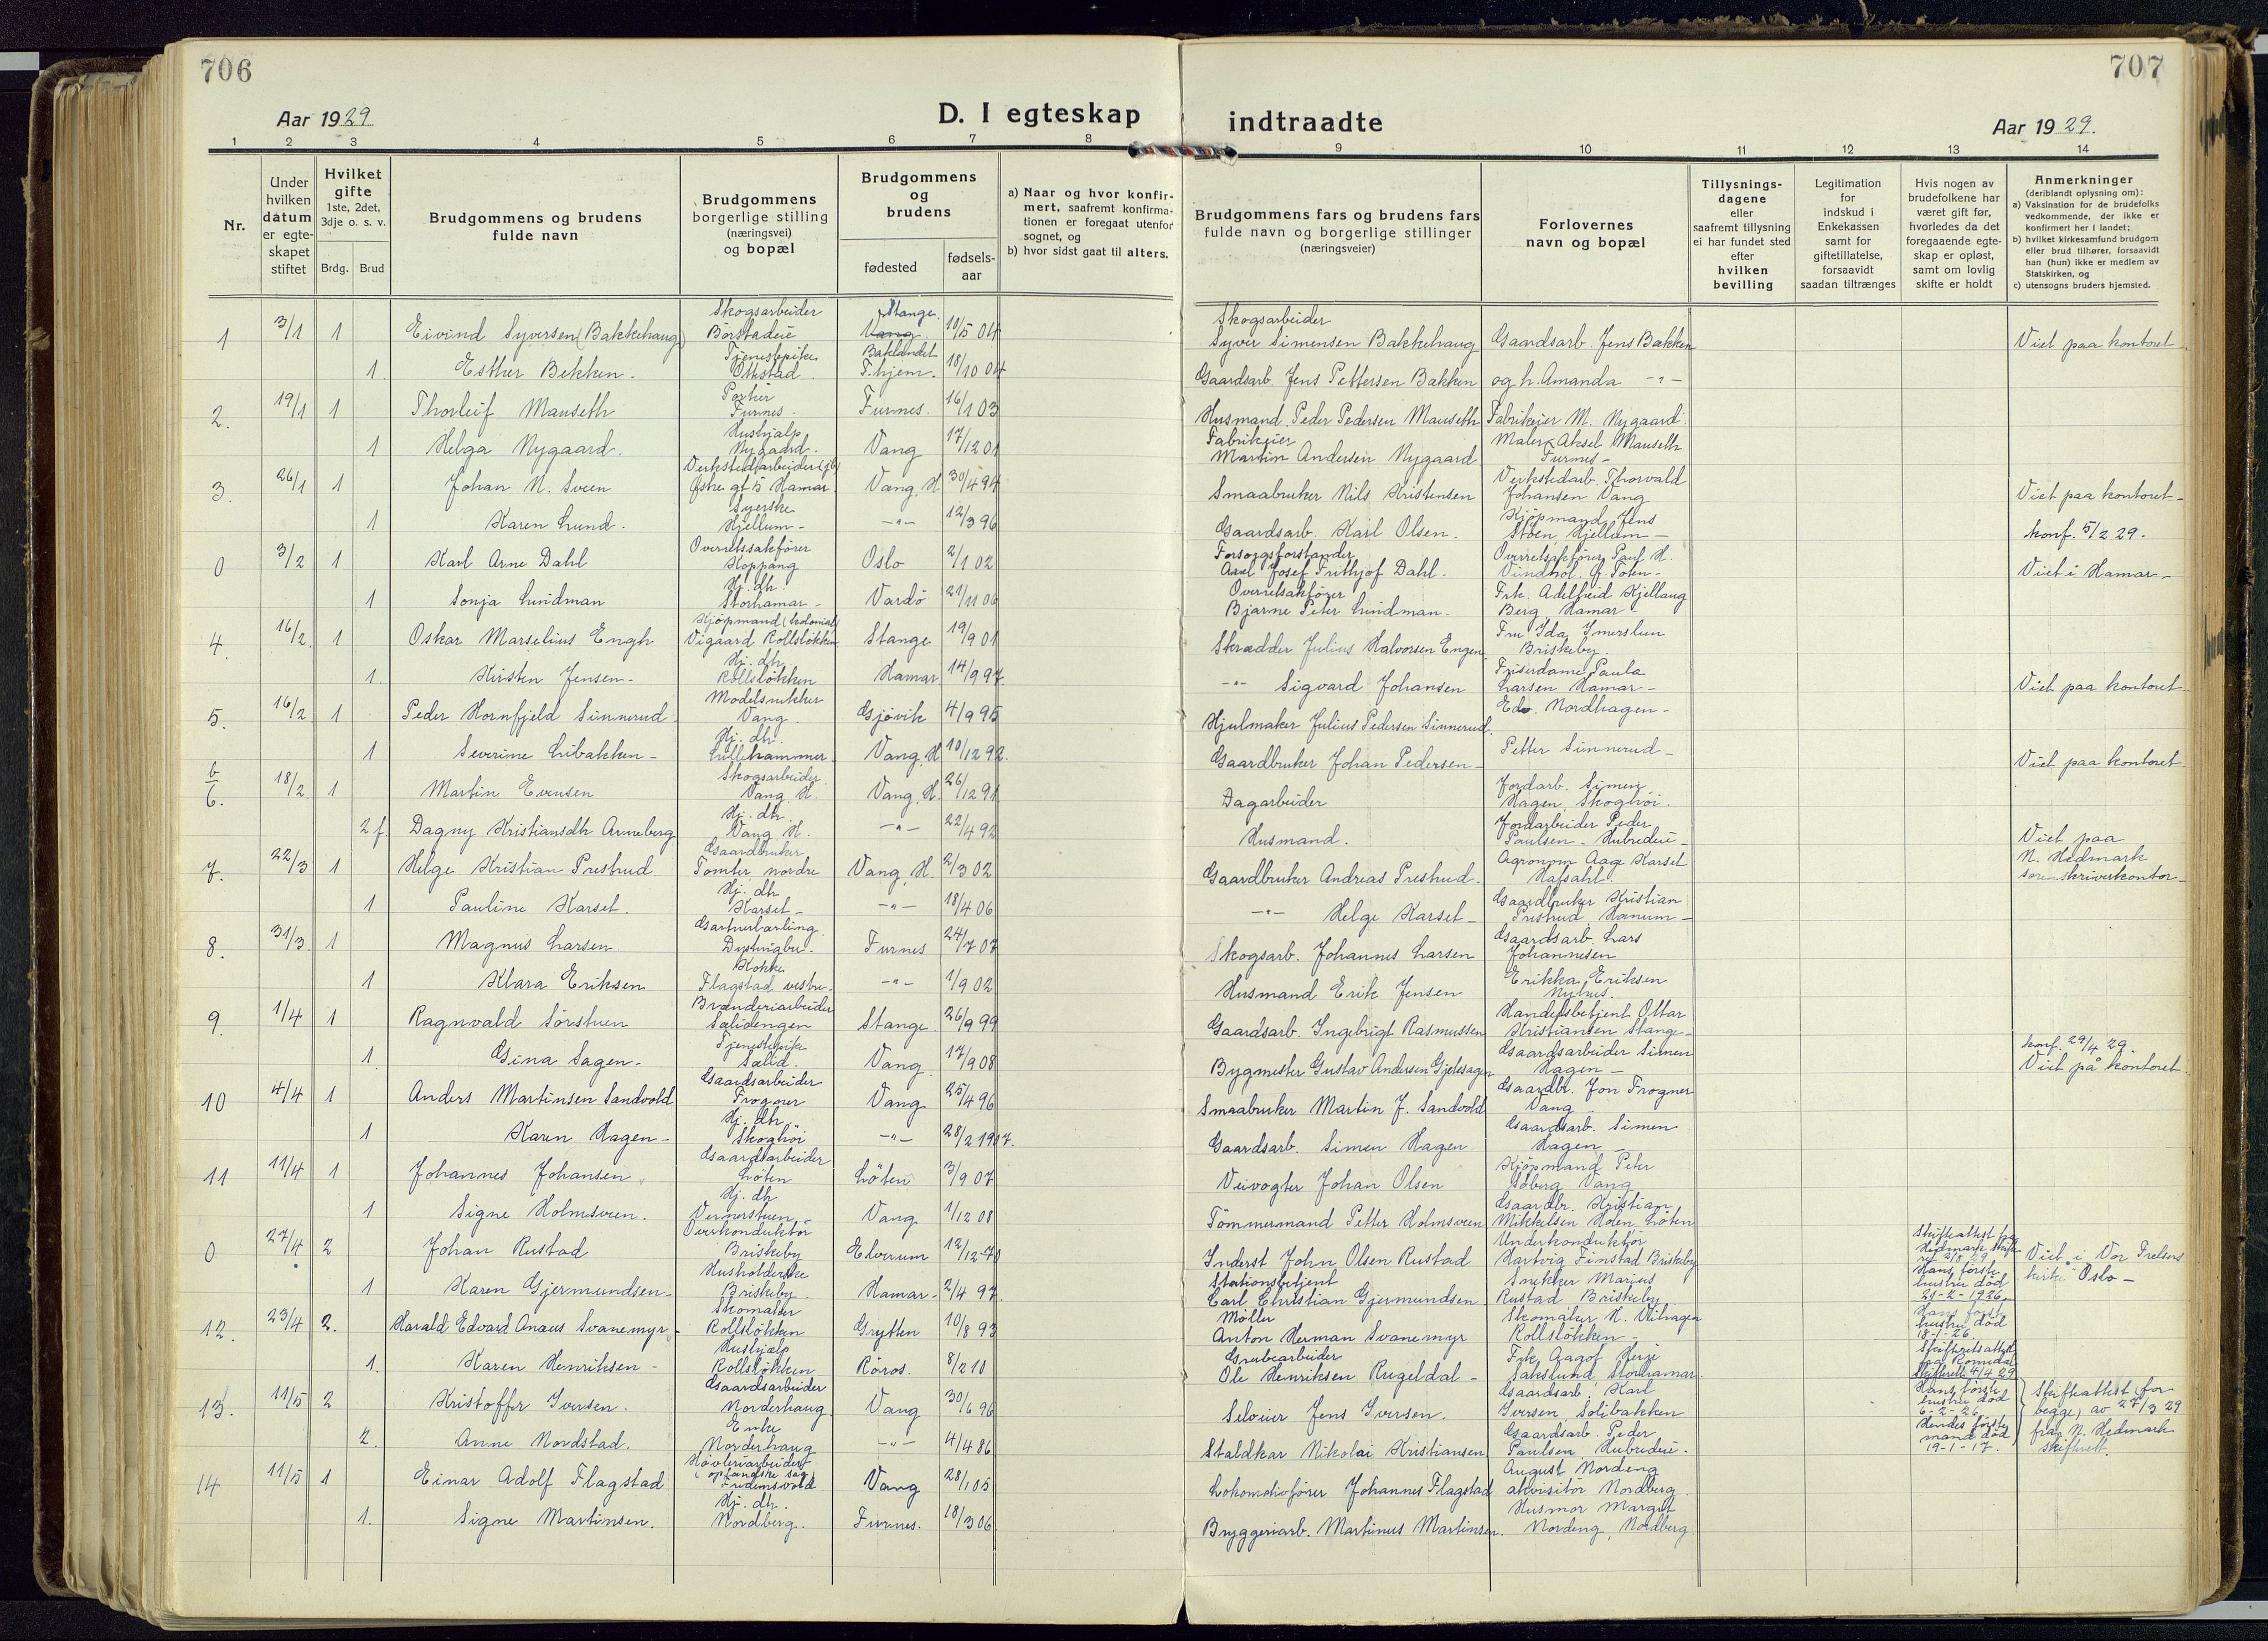 706
707
Aar 1929
D. I egteskap
indtraadte
Aar 1929.
1 2 3 4 5 6 7 8 9 10 11 12 13 14
Nr.
Under hvilken datum er egteskapet stiftet
Hvilket gifte 1ste, 2det, 3dje o. s. v.
Brdg. Brud
Brudgommens og brudens fulde navn
Brudgommens borgerlige stilling (næringsvei) og bopæl
Brudgommens og brudens
fødested
fødsels-aar
a) Naar og hvor konfirmert, saafremt konfirmationen er foregaat utenfor sognet, og
b) hvor sidst gaat til alters.
Brudgommens fars og brudens fars fulde navn og borgerlige stillinger (næringsveier)
Forlovernes navn og bopæl
Tillysningsdagene eller saafremt tillysning ei har fundet sted efter hvilken bevilling
Legitimation for indskud i Enkekassen samt for giftetillatelse, forsaavidt saadan tiltrænges
Hvis nogen av brudefolkene har været gift før, hvorledes da det foregaaende egteskap er opløst, samt om lovlig skifte er holdt
Anmerkninger (deriblandt oplysning om):
a) Vaksination for de brudefolks vedkommende, der ikke er konfirmert her i landet;
b) hvilket kirkesamfund brudgom eller brud tilhører, forsaavidt han (hun) ikke er medlem av Statskirken, og
c) utensogns bruders hjemsted.
1 3/1 1 Eivind Syversen (Bakkehaug) Skogsarbeider Børstadeie Stange Vang 10/5 04 Skogsarbeider Syver Simensen Bakkehaug Gaardsarb. Jens Bakken Viet paa kontoret
1 Esther Bekken. Tjenestepike Otkstad Baklandet T.hjem. 18/10 04 Gaardsarb. Jens Pettersen Bakken og h. Amanda -"-
2. 19/1 1 Thorleif Mauseth Portier Furnes. Furnes. 16/1 03 Husmand Peder Pedersen Mauseth Fabrikeier M. Nygaard.
1 Helga Nygaard. Hushjalp Nygaard. Vang 17/12 01 Fabrikeier Martin Andersen Nygaard Maler Aksel Mauseth Furnes-
3. 26/1 1 Johan N. Sveen Verkstedarbeider Østre gt 5 Hamar Vang, H. 30/4 94 Smaabruker Nils Kristensen Verkstedarb. Thorvald Johansen Vang Viet paa kontoret-
1 Karen Lund. Syerske Hjellum- -"- 12/3 96 Gaardsarb. Karl Olsen. Kjøpmand Jens Støen, Hjellum- konf. 5/2 29.
0 3/2 1 Karl Arne Dahl Overretssakfører Koppang Oslo 2/1 02 Forsorgsforstander Axel Josef Frithjof Dahl. Overretsakfører Paul H. Vindhol. Ø. Toten- Viet i Hamar-
1 Sonja Lindman Hj. dh. Storhamar- Vardø 21/11 06 Overretsakfører Bjarne Peter Lindman- Frk. Adelheid Kjellaug Berg Hamar
4. 16/2. 1 Oskar Marselius Engh Kjøpmand (kolonial) Vigaard Rollsløkken Stange 19/9 01 Skrædder Julius Halvorsen Engen Fru Ida Imerslun Briskeby.
1. Kirsten Jensen- Hj. dh. Rollsløkken Hamar 14/9 97. -"- Sigvard Johansen Friserdame Paula Larsen Hamar- Viet paa kontoret
5. 16/2. 1 Peder Hornfjeld Sinnerud Modelsnekker Vang. Gjøvik 4/9 95 Hjulmaker Julius Pedersen Sinnerud. Edv. Nordhagen-
1 Severine Libakken- Hj. dh. Lillehammer Vang, H 10/12 92. Gaardbruker Johan Pedersen- Petter Sinnerud- Viet paa kontoret
b/6. 18/2 1 Martin Evensen Skogsarbeider. Vang. H. Vang, H. 26/12 91 Dagarbeider Jordarb. Simen Hagen, Skoghøi.
2 f Dagny Kristiansdh Arneberg Hj. dh. Vang H. -"- 22/4 92 Husmand. Jordarbeider Peder Paulsen- Hubredeie- Viet paa N. Hedmark sorenskriverkontor-
7. 22/3 1 Helge Kristian Prestrud Gaardbruker Tomter, nordre Vang, H. 2/3 02 Gaardbruker Andreas Prestrud. Agronom Aage Karset Hafsahl.
1 Pauline Karset. Hj. dh. Karset- -"- 18/4 06 -"- Helge Karset- Gaardbruker Kristian Prestrud Hanum-
8. 31/3. 1 Magnus Larsen Gartnerlærling. Dystvigbu. Furnes 24/7 07 Skogsarb. Johannes Larsen Gaardsarb. Lars Johannesen
1 Klara Eriksen Kokke Flagstad vestre. -"- 1/9 02 Husmand Erik Jensen Erikka Eriksen Nyhus.
9. 1/4 1 Ragnvald Sørstuen Brænderiarbeider Sælidengen Stange. 26/9 99 Gaardsarb. Ingebrigt Rasmussen Handelsbetjent Ottar Kristiansen Stange-
1. Gina Sagen- Tjenestepike Sælid. Vang 17/9 08 Bygmester Gustav Andersen Gjetesagen Gaardsarbeider Simen Hagen- konf. 29/4 29. Viet på kontoret
10 4/4 1 Anders Martinsen Sandvold Gaardsarbeider Frogner Vang 25/4 96 Smaabruker Martin J. Sandvold Gaardbr. Jon Frogner Vang
1 Karen Hagen- Hj. dh. Skoghøi -"- 28/2 1907. Gaardsarb. Simen Hagen Gaardsarb. Simen Hagen-
11 11/4 1 Johannes Johansen Gaardsarbeider Løten Løten 3/9 07 Veivogter Johan Olsen Kjøpmand Peter Søberg Vang
1 Signe Holmsveen. Hj. dh. Vernerstuen- Vang 1/12 08 Tømmermand Petter Holmsveen Gaardbr. Kristian Mikkelsen Holen, Løten
0 27/4 2 Johan Rustad Overkonduktør Briskeby Elverum 12/12-70 Inderst John Olsen Rustad Underkonduktør Hartvig Finstad Briskeby Skifteattest fra Hedmark skifteret 2/3 29 Hans første hustru død 21-2-1926. Viet i Vor Frelsers kirke Oslo-
1 Karen Gjermundsen- Husholderske Briskeby. Hamar- 2/4 97. Stationsbetjent Carl Christian Gjermundsen Snekker Marius Rustad Briskeby
12. 23/4 2. Harald Edvard Anæus Svanemyr- Skomaker Rollsløkken Grytten 10/8 93 Møller Anton Herman Svanemyr Skomaker H. Veihagen Rollsløkken- Hans første hustru død 18-1-26. Skifteretsattest fra Romedal Skifterett 4/4 29
1. Karen Henriksen- Hushjælp Rollsløkken Røros. 8/2 10 Grubearbeider Ole Henriksen Rugeldal- Frk. Aagot Herje Sakslund, Storhamar.
13. 11/5 2 Kristoffer Iversen. Gaardsarbeider Norderhaug Vang 30/6 96 Seloier Jens Iversen. Gaardsarb. Karl Iversen, Solibakken Hans første hustru død 6-2-26 Skifteattest for begge, av 27/3 29 fra N. Hedmark skifterett.
2. Anne Nordstad. Enke Norderhaug -"- 4/4 86 Staldkar Nikolai Kristiansen Gaardsarb. Peder Paulsen, Hubredeie. Hendes første mand død 19-1-17.
14 11/5 1 Einar Adolf Flagstad Høvleriarbeider i oplandske sag, Fredensvold Vang 28/1 05 Lokomotivfører Johannes Flagstad August Nordeng akvisitør Nordberg
1. Signe Martinsen. Hj. dh. Nordberg. Furnes. 18/3 06 Bryggeriarb. Martinus Martinsen. Husmor Margit Nordeng, Nordberg.